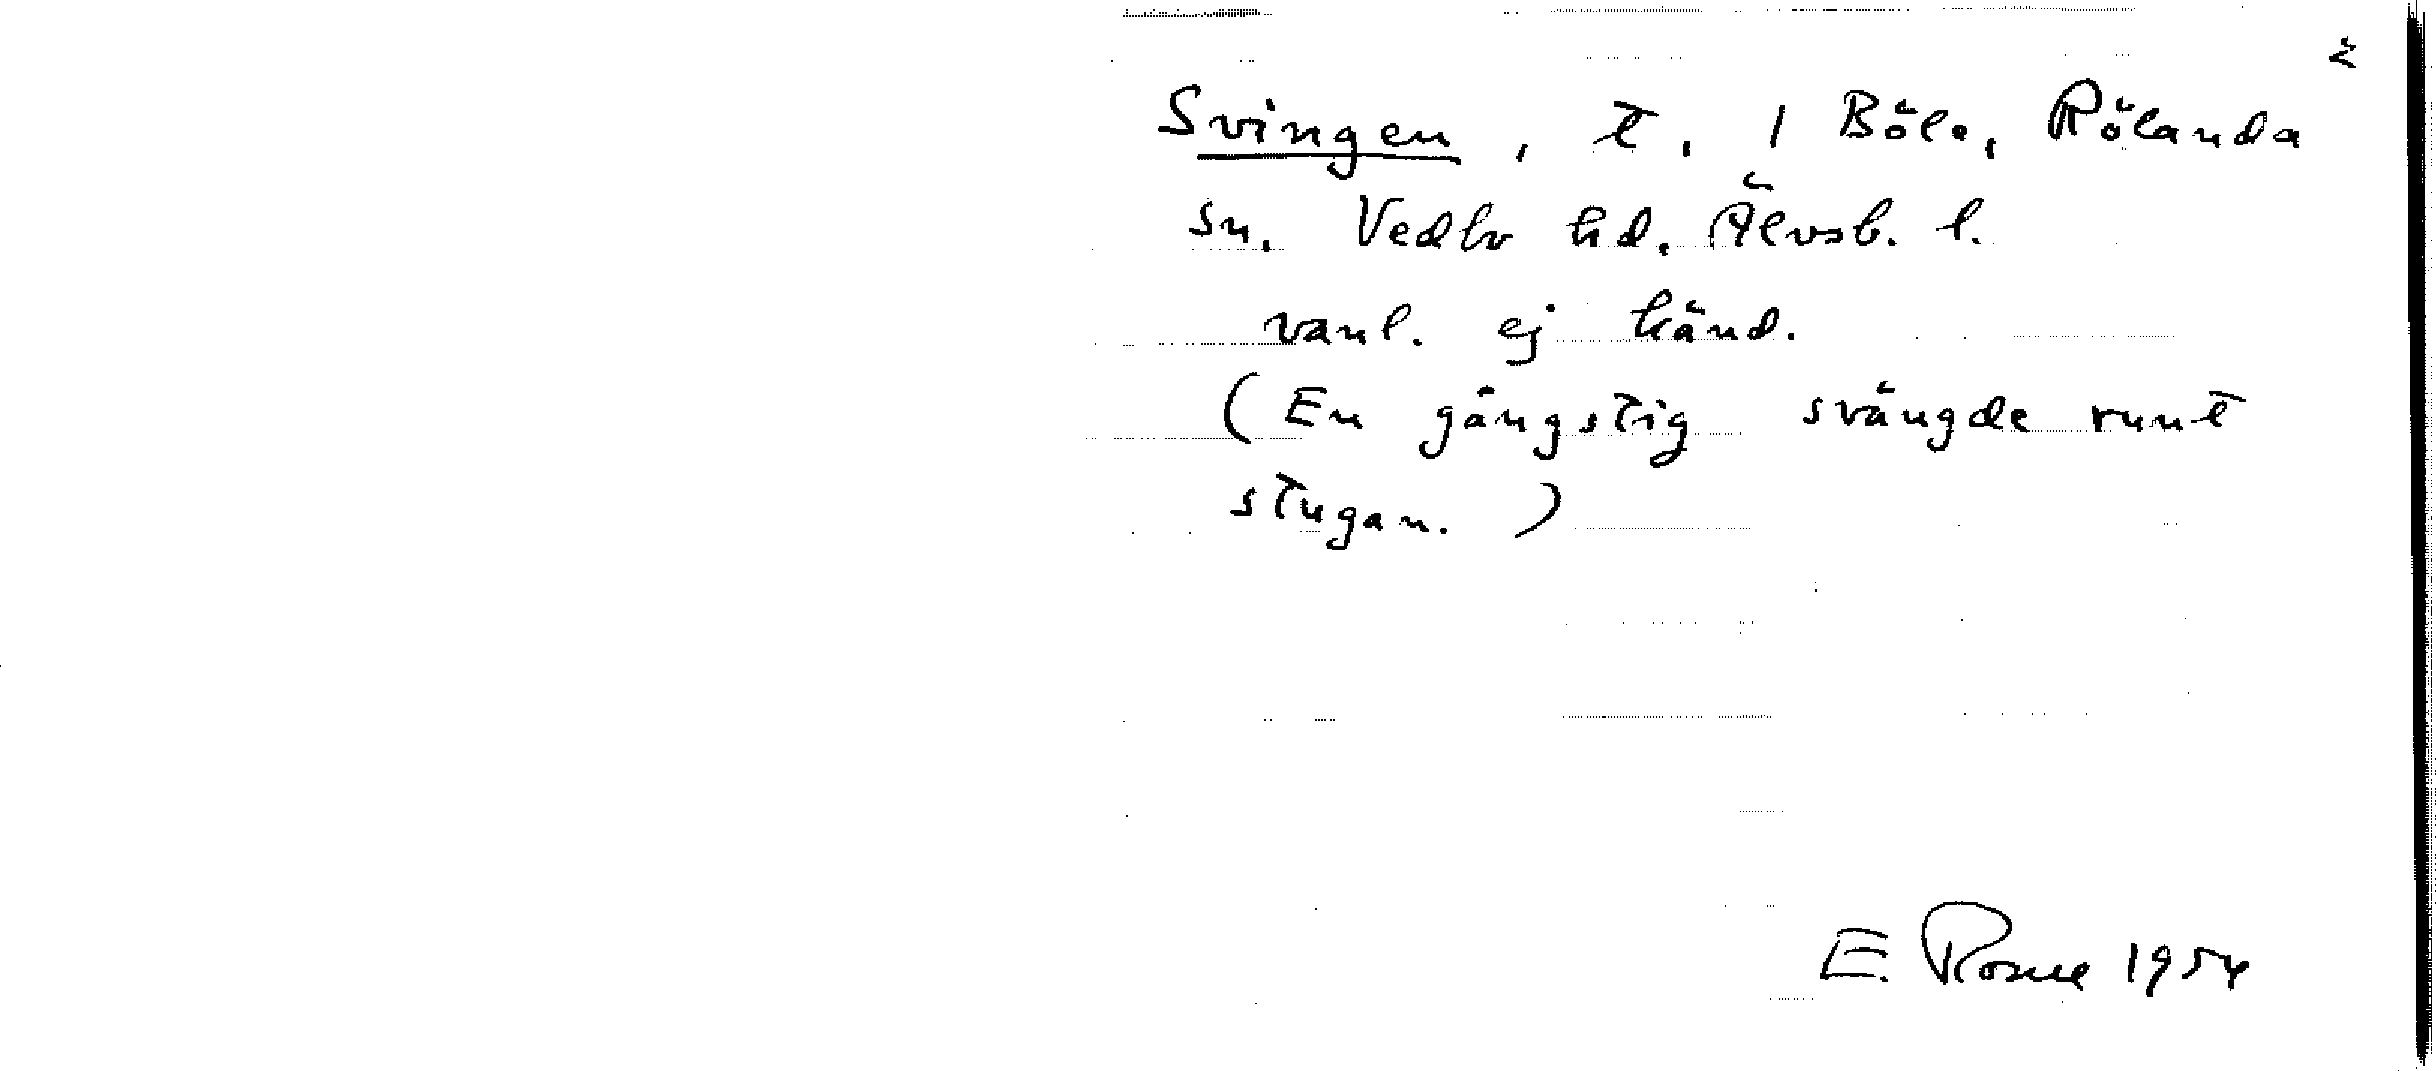 2
Svingen, t. 1 Böle, Rölanda
sn. Vedbo hd. Älvsb. l.
vanl. ej känd.
(En gångstig svängde runt
stugan.)
E. Rosne 1954